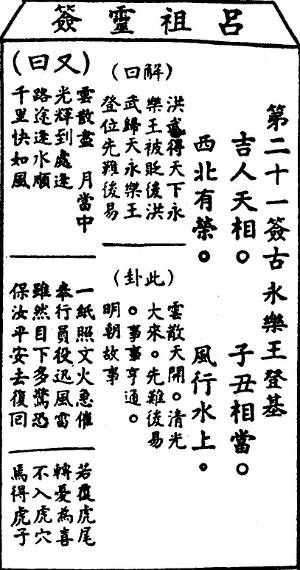 呂祖靈籤
第二十一簽古 永樂王登基
吉人天相。 子丑相當。
西北有榮。 風行水上。
(解曰)
洪武得天下永
樂王被貶後洪
武歸天永樂王
登位先難後易
(此卦)
雲散天開。清光
大來。先難後易
。事事亨通。
明朝故事
(又曰)
雲散盡 月當中
光輝到處逢
路途逢水順
千里快如風
一紙照文火急催
奉行員役迅風雷
雖然目下多驚恐
保汝平安去復回
若履虎尾
轉憂為喜
不入虎穴
焉得虎子